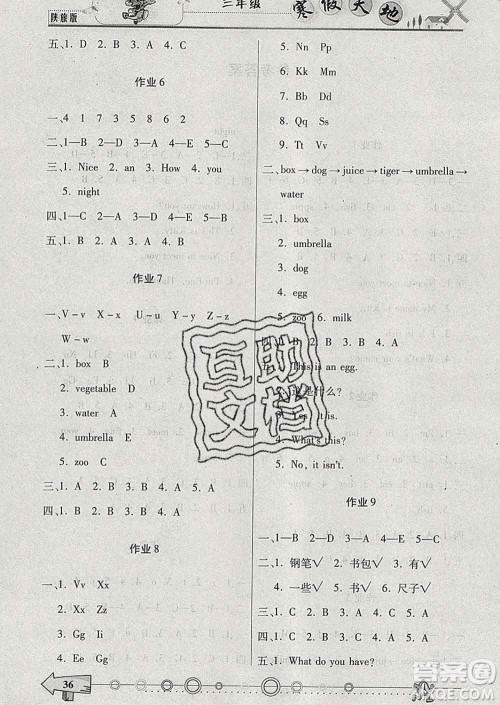 陕旅版
三年级
寒假天地
五、1. C 2. B 3. A 4. B 5. A
作业 6
一、4 1 7 3 5 8 6 2
二、1—B 2—D 3—A 4—E 5—C
三、1. Nice 2. an 3. How 4. you
5. night
四、1—C 2—D 3—A 4—E 5—B
五、1. B 2. A 3. B 4. A 5. A
作业 7
一、V – v X – x U – u Y – y Z – z
W – w
二、1. box B
2. vegetable D
3. water A
4. umbrella E
5. zoo C
三、1. A 2. B 3. B 4. A 5. A
四、1. B 2. B 3. A 4. B
作业 8
一、1. Vv Xx
2. Xx Zz
3. Gg Ii
4. Ee Gg
5. Ll Nn
6. Kk Mm
8. Qq Ss
9. Tt Vv
二、box → dog → juice → tiger → umbrella →
water
三、1. box
2. umbrella
3. dog
4. egg
5. zoo 6. milk
B 3. B 4. A 5. A
is an egg.
是什么?
it is.
4. What's this?
5. No, it isn't.
作业 9
一、1. 钢笔√ 2. 书包√ 3. 有√
4. 一些√ 5. 书√ 6. 尺子√
二、1—D 2—A 3—B 4—E 5—C
三、1. C 2. B 3. C 4. A 5. A
四、1. C 2. A 3. B 4. B 5. A
五、1. What do you have?
36
互助
文档
答案圈
MXQE.COM